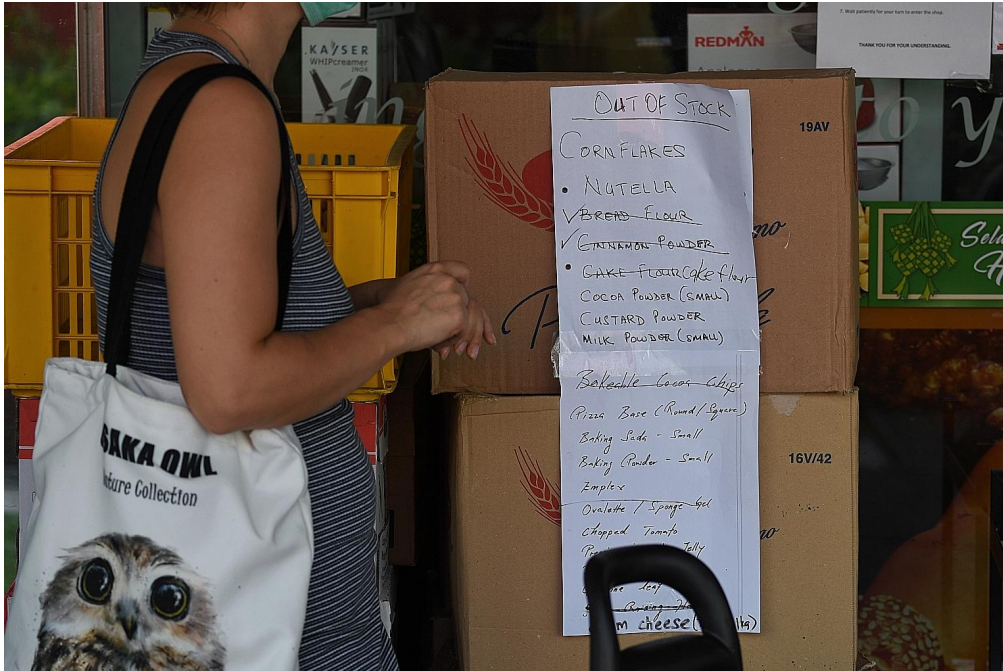 7. Wait patiently for your turn to enter the shop.
THANK YOU FOR YOUR UNDERSTANDING.
KAYSER
WHIPcreamer
INOX
REDMAN
to y
19AV
OUT OF STOCK
CORNFLAKES
• NUTELLA
✓ BREAD FLOUR
✓ CINNAMON POWDER
• CAKE FLOUR Cake flour
COCOA POWDER (SMALL)
CUSTARD POWDER
MILK POWDER (SMALL)
Bakeable Cocoa Chips
Pizza Base (Round/Square)
Baking Soda - Small
Baking Powder - Small
Emplex
Ovalette / Sponge Gel
Chopped Tomato
Jelly
leaf
cheese
16V/42
AKA OWL
ture Collection